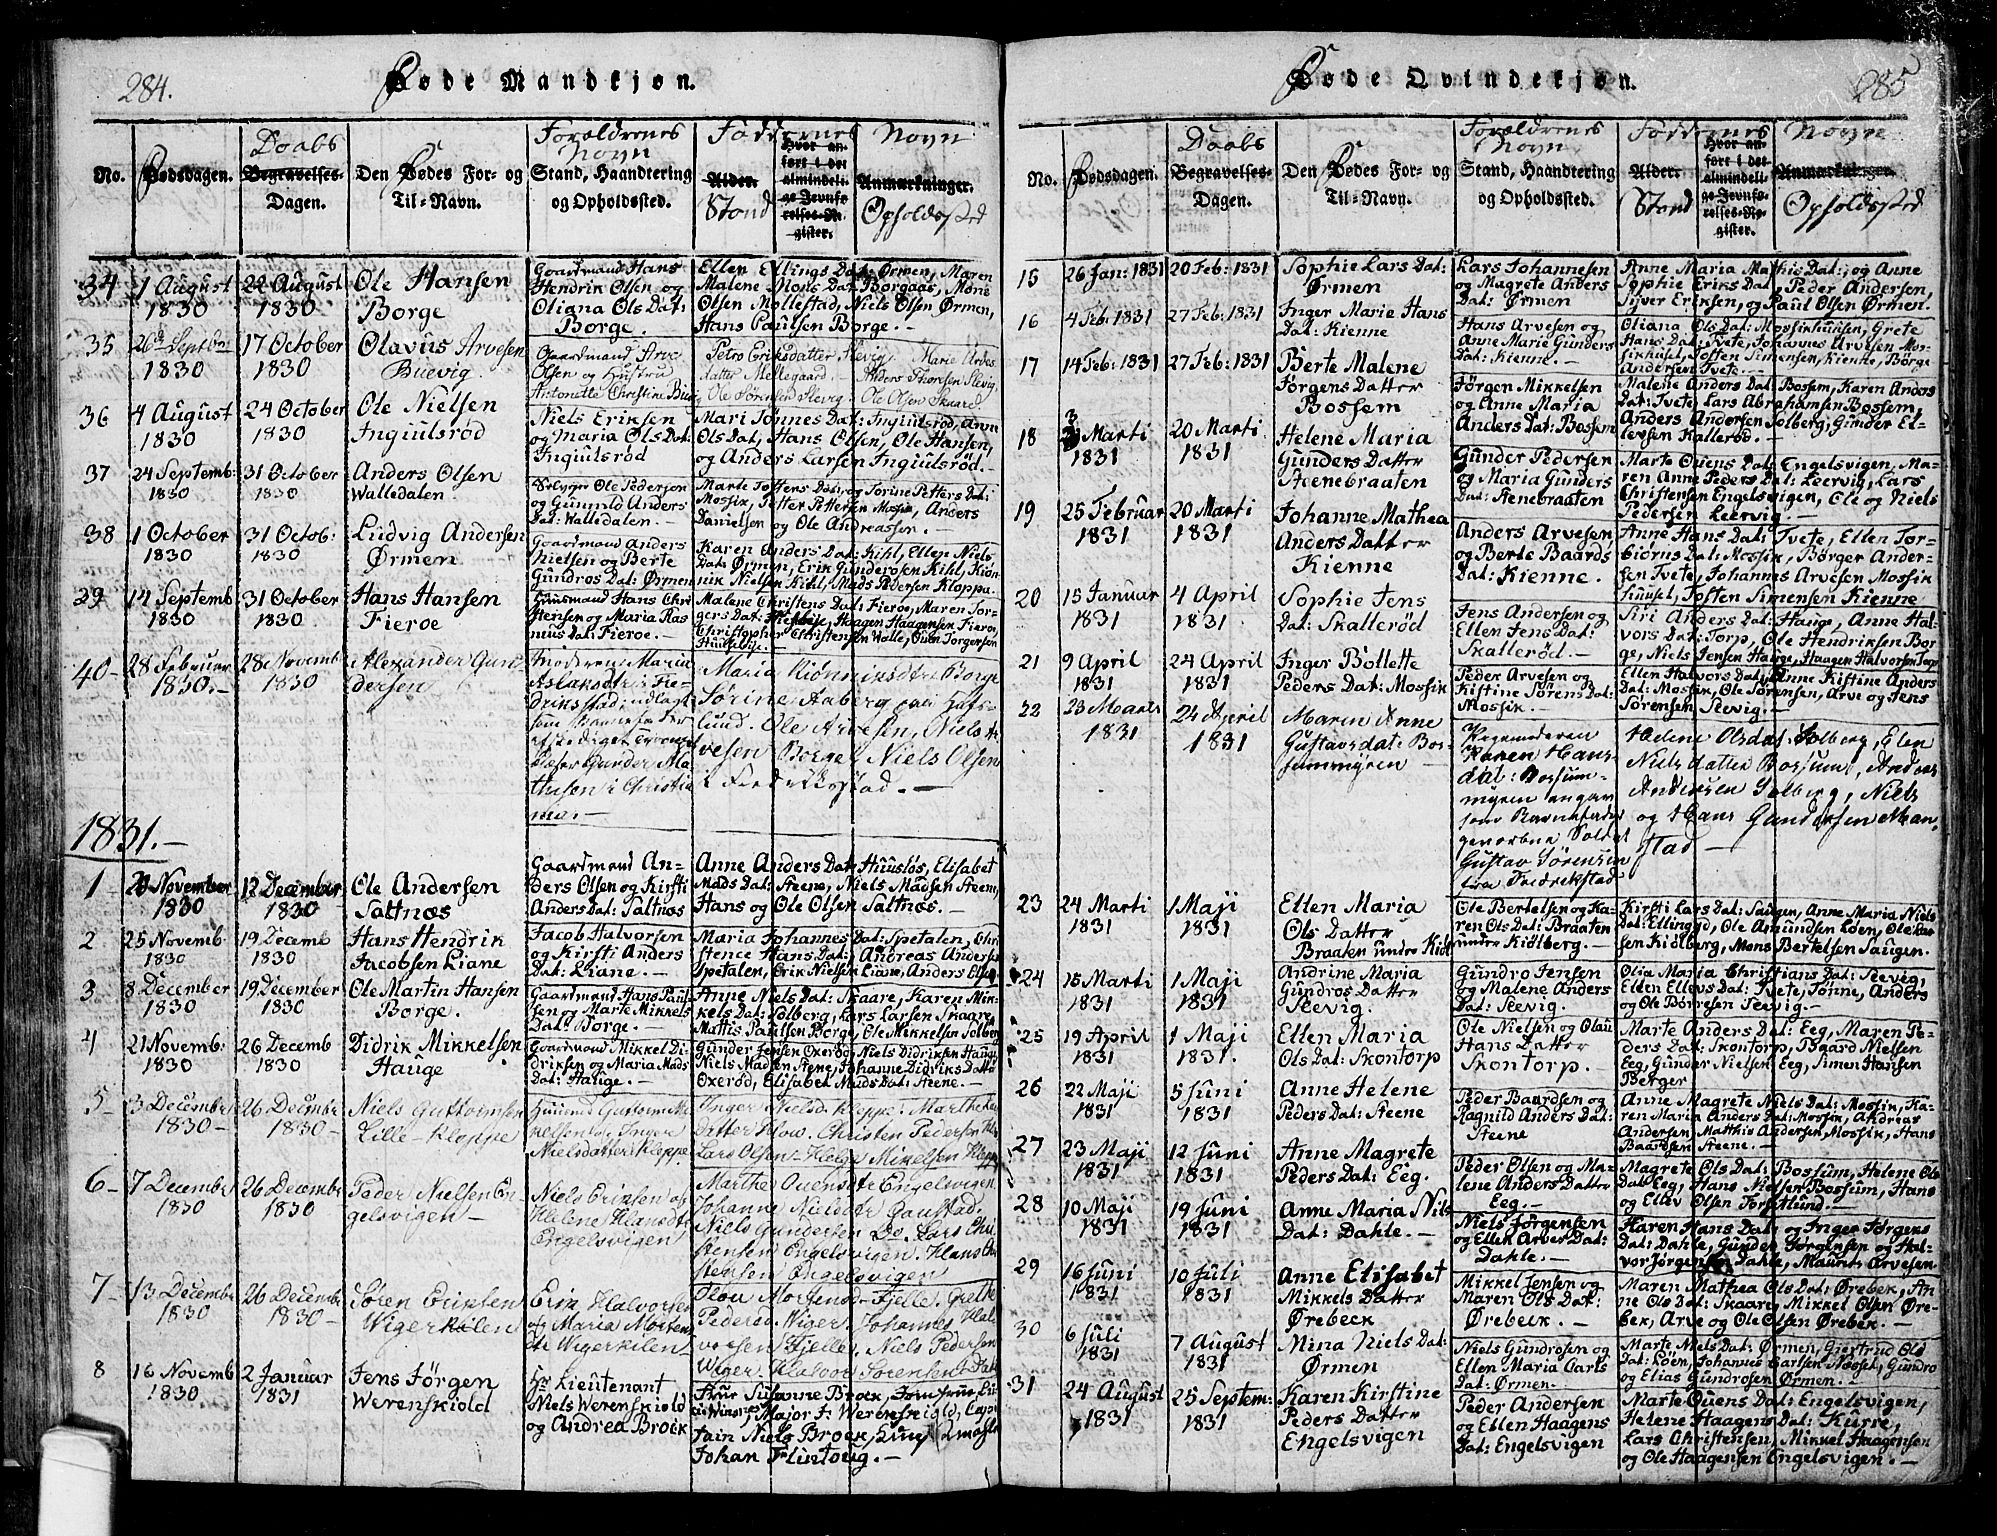 284.
Døde Mandkjøn.
No.
Dødsdagen.
Daabs
Begravelses-
Dagen.
Den Dødes For- og
Til-Navn.
Forældrenes
Navn
Stand, Haandtering
og Opholdssted.
Faddernes Navn
Alder.
Stand
Hvor an-
ført i det
almindeli-
ge Jevnfø-
relses-Re-
gister.
Anmærkninger.
Opholdssted
34
1 August
1830
22 August
1830
Ole Hansen
Borge
Gaardmand Hans
Hendrik Olsen og
Oliana Ols Dat:
Borge.
Ellen Ellings Dat: Ørmen, Maren
Malene Mons Dat: Borgaas, Mons
Olsen Mollestad, Niels Olsen Ørmen,
Hans Paulsen Borge. —
35
26 Septbr
1830
17 October
1830
Olavus Arvesen
Buevig.
Gaardmand Arve
Olsen og Hustru
Antonette Christine Buevig
Petro Eriksdatter Slevig Marie Andes
datter Mellegaard Anders Thoresen Slevig
Ole Sørensen Slevig Ole Olsen Skaard
36
4 August
1830
24 October
1830
Ole Nielsen
Ingiulsrød
Niels Eriksen
og Maria Ols Dat:
Ingiulsrød
Mari Tønnes Dat: Ingiulsrød, Anne
Ols Dat, Hans Olsen, Ole Hansen,
og Anders Larsen Ingiulsrød.
37
24 Septemb:
1830
31 October
1830
Anders Olsen
Walledalen
Selvejer Ole Pedersen
og Gunnild Anders
Dat: Walledalen.
Marte Tostens Dat: og Torine Petters Dat:
Mossik, Petter Pettersen Mossik, Anders
Danielsen og Ole Andreassen.
38
1 October
1830
31 Octob:
1830
Ludvig Andersen
Ørmen
Gaardmand Anders
Nielsen og Berte
Gundros Dat: Ørmen
Karen Anders Dat: Kihl, Ellen Niels
Dat: Ørmen, Erik Gunderosen Kihl, Kiøn-
nik Nielsen Kihl, Mads Pedersen Kloppa.
39
14 Septemb
1830
31 October
1830
Hans Hansen
Fieroe
Huusmand Hans Chri
stensen og Maria Ras
mus Dat: Fieroe.
Malene Christens Dat: Fieroe, Maren Tor-
gers Dat: Haagen Haagensen Fieroe,
Christopher Christensen Walle, Ouen Torgersen
40
28 Februar
1830.—
28 Novemb
1830
Alexander Gun
dersen
Moderen Maria
Aslaksdtr: Fre-
driksstad, udlagt
som Barnefader
afskediget
Gunder Ma
thiesen i Christia
nia. —
Maria Kiønniksdtr Borge
Sørine Aaberg paa Gaf-
lund. Ole Arvesen, Niels Ar
vesen Borge, Niels Olsen
i Frederiksstad. —
1831.—
1
29 November
1830
12 December
1830
Ole Andersen
Saltnæs
Gaardmand An-
ders Olsen og Kirsti
Anders Dat: Saltnæs
Anne Anders Dat: Huusløs, Elisabet
Mads Dat: Steene, Niels Madsen Steen,
Hans og Ole Olsen Saltnæs. —
2
25 Novemb
1830
19 Decemb
1830
Hans Hendrik
Jacobsen Liane
Jacob Halvorsen
og Kirsti Anders
Dat: Liane. —
Maria Johannes Dat: Spetalen, Chri
stence Hans Dat: Andreas Andersen
Spetalen, Erik Nielsen Liane, Anders
3
8 December
1830
19 December
1830
Ole Martin Hansen
Borge.
Gaardmand Hans Paul
sen og Marte Mikkels
Dat: Borge. —
Anne Niels Dat: Skaare, Karen Mik-
kels Dat: Solberg, Lars Larsen Skaare,
Mattis Paulsen Borge, Ole Mikkelsen Solberg
4
21 Novemb:
1830
26 Decemb
1830
Didrik Mikkelsen
Hauge
Gaardmand Mikkel Di
driksen og Maria Mads
Dat: Hauge. —
Gunder Jensen Oxerød, Niels Didriksen Hauge
Niels Madsen Steene, Johanne Didriks Datter
Oxerød, Elisabet Mads Dat: Steene. —
5-
3 Decembe
1830 -
26 Decembr
1830 -
Niels Guttormsen
Lille-Kloppe
Huusmd Guttorm
Nielsen og Inger
Nielsdatter Kloppe
Inger Nielsdr Kloppe. Marthe
datter Klow. Christen Pedersen
Lars Olsen. Helge Mikelsen Kloppe
6-
7 Decembe
1830
26 Decembe
1830
Peder Nielsen En
gelsvigen —
Niels Eriksen og
Helene Hansdtr
Engelsvigen
Marthe Ouensdtr Engelsvigen
Johanne Nielsdtr Gaustad.
Niels Gundersen Do. Lars Chri
stensen Engelsvigen. Hans Chri
stensen Engelsvigen
7-
13 Decembe
1830
26 Decembe
1830 -
Søren Eriksen
Wigerkilen
Erik Halvorsen
og Maria Morten
dtr Wigerkilen
Mortensdr Fjelle. Grethe
Pedersd Wiger. Johannes Hal
vorsen Fjelle. Niels Pedersen
Wiger. Halvor Sørensen
8
16 Novemb
1830
2 Januar
1831
Jens Jörgen
Werenskiold
Hr Lieutenant
Niels Werenskiold
og Andrea Broek
Susanne Broek,
Major J: Werenskiold, Capi
tain Niels Broek,
Johan Flintoug. —
285
Døde Qvindekjøn.
No.
Dødsdagen.
Daabs
Begravelses-
Dagen.
Den Dødes For- og
Til-Navn.
Forældrenes
Navn
Stand, Haandtering
og Opholdssted.
Faddernes Navn
Alder.
Stand
Hvor an-
ført i det
almindeli-
ge Jevnfø-
relses-Re-
gister.
Anmærkninger.
Opholdssted
15
26 Jan: 1831
20 Feb: 1831
Sophie Lars Dat:
Ørmen
Lars Johannesen
og Magrete Anders
Dat: Ørmen
Anne Maria Mathis Dat:, og Anne
Sophie Eriks Dat, Peder Andersen,
Syver Eriksen, og Paul Olsen Ørmen.
16
4 Feb: 1831
27 Feb: 1831
Inger Marie Hans
Dat: Kienne
Hans Arvesen og
Anne Marie Gunders
Dat: Kienne. —
Oliana Ols Dat: Mossikhuusen, Grete
Hans Dat: Tvete, Johannes Arvesen Mos-
sikhusel, Tosten Simensen, Kienne, Börge
Andersen Tvete. —
17
14 Feb: 1831
27 Feb: 1831
Berte Malene
Jörgens Datter
Bossem
Jörgen Mikkelsen
og Anne Maria
Anders Dat: Bossem
Malene Anders Dat: Bossem, Karen Anders
Dat: Tvete, Lars Abrahamsen Bossem,
Anders Andersen Solberg, Gunder El-
levsen Kallerød. —
18
3 Marti
1831
20 Marti
1831
Helene Maria
Gunders Datter
Steenebraaten
Gunder Pedersen
og Maria Gunders
Dat: Stenebraaten
Marte Ouens Dat: Engelsvigen, Ma-
ren Anne Peders Dat: Leervig, Lars
Christensen Engelsvigen, Ole og Niels
Pedersen Leervig —
19
25 Februar
1831
20 Marti
1831
Johanne Mathea
Anders Datter
Kienne
Anders Arvesen
og Berte Baards
Dat: Kienne.
Anne Hans Dat: Tvete, Ellen Tor-
biörns Dat: Mossik, Börger Ander-
sen Tvete, Johannes Arvesen Mossik
huusel, Tosten Simensen Kienne
20
15 Januar
1831
4 April
1831
Sophie Jens
Dat: Skallerød
Jens Andersen og
Ellen Jens Dat:
Skallerød.
Siri Anders Dat: Hauge, Anne Hal-
vors Dat: Torp, Ole Hendriksen Bor
ge, Niels Jensen Hauge, Haagen Halvorsen Torp
21
9 April
1831
24 April
1831
Inger Bollette
Peders Dat: Mossik
Peder Arvesen og
Kistine Sörens Dat:
Mossik. —
Ellen Halvors Dat: og Anne Kistine Anders
Dat: Mossik, Ole Sörensen, Arve og Jens
Sörensen Seevig. —
22
23 Marts
1831
24 April
1831
Maren Anne
Gustavsdat: Bos-
summyren
Pigemoderen
Karen Hans-
dat: Bossum-
myren angav
som Barnefader
geworbne Soldat
Gustav Sörensen
fra Fredrikstad
Helene Olsdat: Solberg, Elen
Nielsdatter Bossum, Anders
Andersen Solberg, Niels
og Hans Gundersen Man-
stad —
23
24 Marti
1831
1 Maji
1831
Ellen Maria
Ols Datter
Braaten under Kiöl
Ole Bertelsen og Ka-
ren Ols Dat: Braaten
under Kiölberg. —
Kirsti Lars Dat: Saugen, Anne Maria Niels
Dat: Ellingsd, Ole Amundsen Löen, Ole Lar
sen Kiölberg, Mons Bertelsen Saugen. —
24
15 Marti
1831
1 Maji
1831
Andrine Maria
Gundros Datter
Seevig.
Gundro Jensen
og Malene Anders
Dat: Seevig.
Olia Maria Christians Dat: Seevig,
Ellen Ellevs Dat: Tvete, Tönne, Anders
og Ole Börresen Seevig. —
25
19 April
1831
1 Maji
1831.
Ellen Maria
Ols Dat: Skontorp
Ole Nielsen og Olau
Hans Datter
Skontorp.
Marte Anders Dat: Eeg, Maren Pe-
ders Dat: Skontorp, Baard Nielsen
Eeg, Gunder Nielsen Eeg, Simen Hansen
Berger
26
22 Maji
1831
5 Juni
1831
Anne Helene
Peders Dat: Steene
Peder Baardsen og
Ragnild Anders Dat:
Steene
Anne Magrete Niels Dat: Mossik, Ka-
ren Maria Anders Dat: Mossik, Andreas
Andersen, Mathis Andersen Mossik, Hans
Baardsen Steene. —
27
23 Maji
1831
12 Juni
1831
Anne Magrete
Peders Dat: Eeg.
Peder Olsen og Ma-
lene Anders Datter
Eeg. —
Magrete Ols Dat: Bossum, Helene Ols
Dat: Eeg, Hans Nielsen Bossum, Hans
og Ellev Olsen Torslund. —
28
10 Maji
1831
19 Juni
1831
Anne Maria Niels
Dat: Dahle. —
Niels Jörgensen
og Ellen Arves Dat:
Dahle. —
Karen Hans Dat: og Inger Jörgens
Dat: Dahle, Gunder Jörgensen og Hal-
vor Jörgensen Dahle, Maurits Arvesen
29
16 Juni
1831
10 Juli
1831
Anne Elisabet
Mikkels Datter
Örebeck
Mikkel Jensen og
Maren Ols Dat:
Örebeck. —
Maren Mathea Ols Dat: Örebek, An-
ne Ols Dat: Skaare, Mikkel Olsen Öre-
bek, Arve og Ole Olsen Örebek. —
30
6 Juli
1831
7 August
1831
Mina Niels Dat:
Ørmen
Niels Gundrosen og
Ellen Maria Carls
Dat: Ørmen.
Marte Niels Dat: Ørmen, Giertrud Ols
Dat: Löen, Johannes Carlsen Nosset, Gundro
og Elias Gundrosen Ørmen. —
31
24 August
1831
25 Septem-
1831
Karen Kirstine
Peders Datter
Engelsvigen
Peder Andersen
og Ellen Haagens
Dat: Engelsvigen
Marte Ouens Dat: Engelsvigen,
Helene Haagens Dat: Kurre,
Lars Christensen, Mikkel Haagensen
og Ole Haagensen Engelsvigen. —